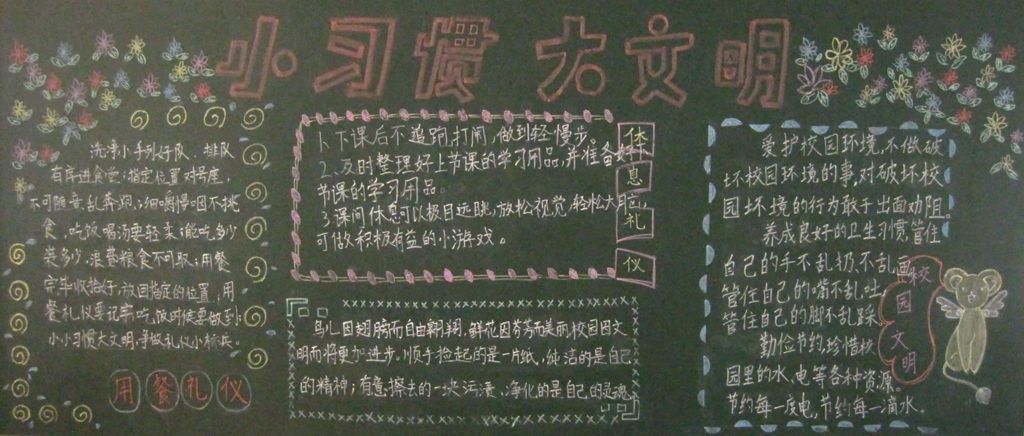 小习惯 大文明
洗净小手列好队，排队
有序进食堂；指定位置对号座，
不可随意乱奔跑；细嚼慢咽不挑
食，吃饭喝汤要轻柔；能吃多少
装多少，浪费粮食不可取；用餐
完毕收拾好，放回指定的位置，用
餐礼仪要记牢吃饭时候要做到；
小小习惯大文明，争做礼仪小标兵。
用餐礼仪
1、下课后不追跑打闹，做到轻、慢步。
2、及时整理好上节课的学习用品，并准备好
节课的学习用品。
3课间休息可以极目远眺，放松视觉，轻松大脑
可做积极有益的小游戏。
休息礼仪
鸟儿因翅膀而自由翱翔，鲜花因芬芳而美丽，校园因文
明而将更加进步。顺手捡起的是一片纸，纯洁的是自己
的精神；有意擦去的一块污渍，净化的是自己的灵魂
爱护校园环境，不做破
坏校园环境的事，对破坏校
园环境的行为敢于出面劝阻。
养成良好的卫生习惯，管住
自己的手不乱扔，不乱画
管住自己的嘴不乱吐
管住自己的脚不乱踩
勤俭节约，珍惜校
园里的水、电等各种资源，
节约每一度电，节约每一滴水。
校园文明